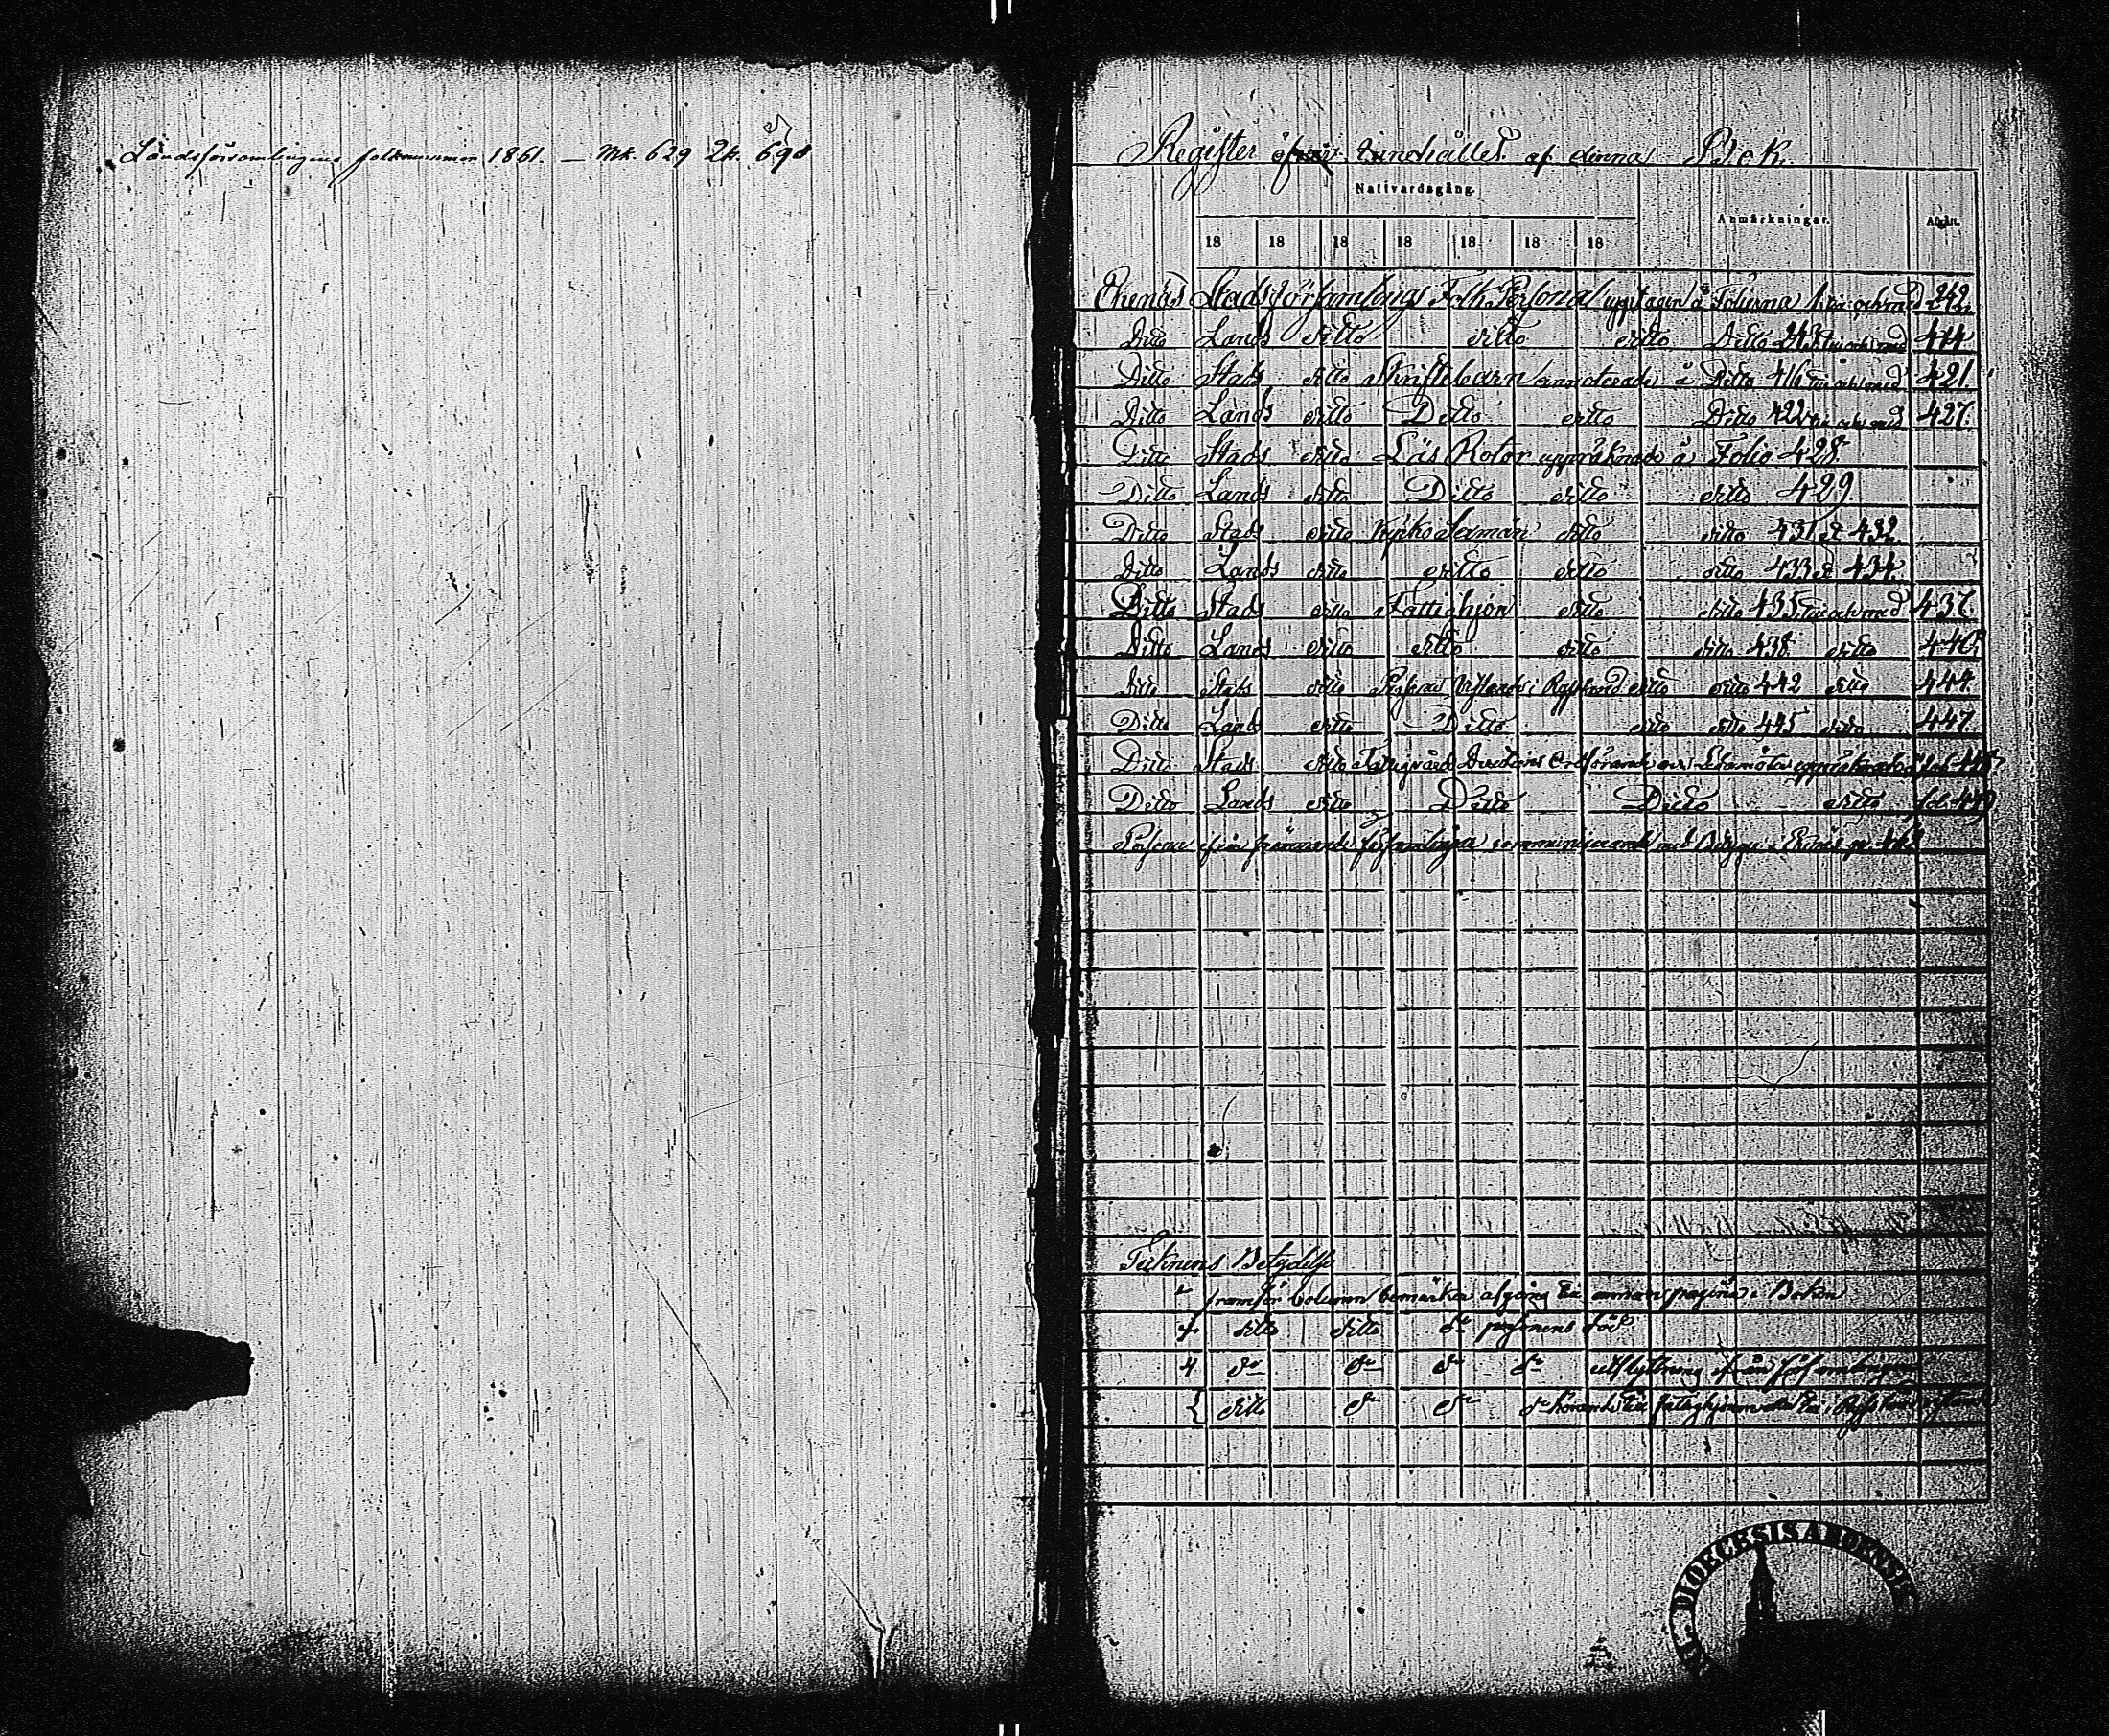 Landsförsamlingens folknummer 1861. — Mk. 629 Qk. 690
Register öfver Innehållet af denna Bok.
Nattvardsgång.
Anmärkningar.
Afgått.
18 18 18 18 18 18 18
Ekenäs Stadsförsamlings Folk Personal upptagen å Folierna 1 till och med 242.
Ditto Lands ditto ditto ditto Ditto 243 till och med 414
Ditto Stads ditto Skriftebarn annoterade å Ditto 416 till och med 421
Ditto Lands ditto Ditto ditto Ditto 422 till och med 427.
Ditto Stads ditto Läs Rotor uppräknade å Folio 428
Ditto Lands ditto Ditto ditto ditto 429.
Ditto Stads ditto Kyrko Sexmän ditto ditto 431 et 432
Ditto Lands ditto ditto ditto ditto 433 et 434.
Ditto Stads ditto Fattighjon ditto ditto 435 till och med 437.
Ditto Lands ditto ditto ditto ditto 438 ditto 440
Ditto Stads ditto Personer Vistande i Ryssland ditto ditto 442 ditto 444.
Ditto Lands ditto Ditto ditto ditto 445 ditto 447
Ditto Stads ditto Fattigvårds Directions Ordförande och Ledamöter uppräknade fol. 448
Ditto Lands ditto Ditto Ditto ditto fol. 449
Personer från främmande församlingar
Teknens Betydelse
framför Column bemärker afgång till annan pagina i Boken
ditto ditto do personens död
do do do do utflyttning från församlingen
{ ditto do do do
DIOECESIS ABOENSIS